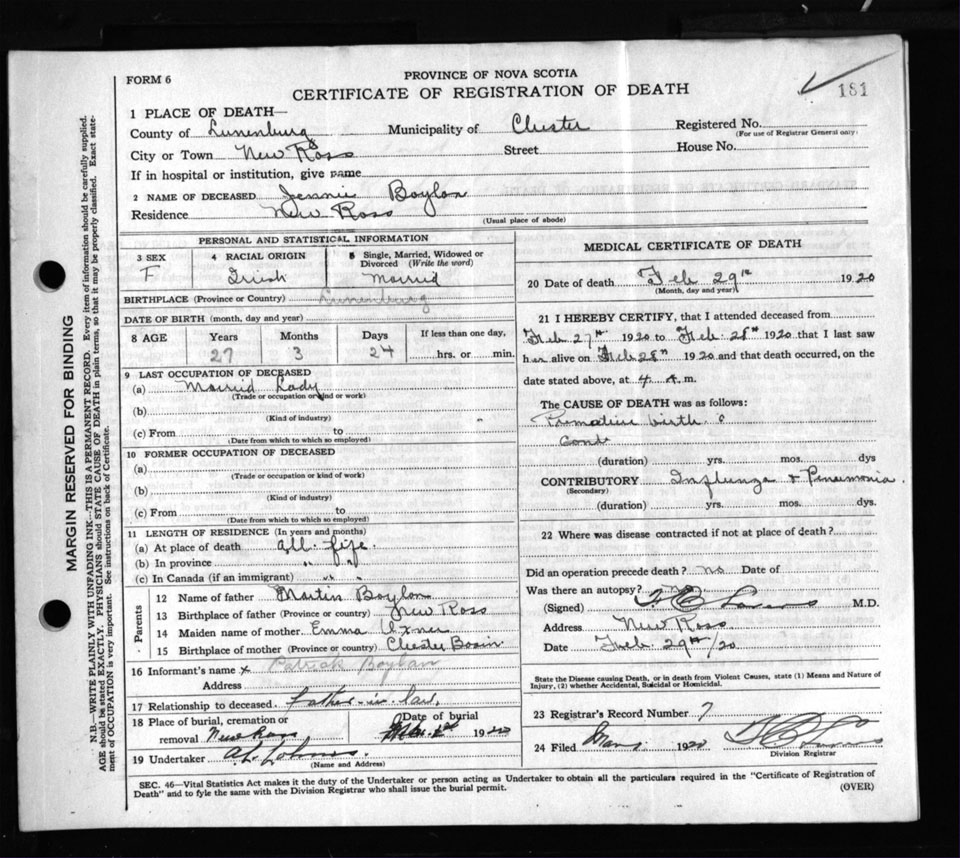 FORM 6
PROVINCE OF NOVA SCOTIA
CERTIFICATE OF REGISTRATION OF DEATH
181
1 PLACE OF DEATH—
County of Lunenburg Municipality of Chester Registered No.
(For use of Registrar General only)
City or Town New Ross Street House No.
If in hospital or institution, give name
2 NAME OF DECEASED Jennie Boylan
Residence New Ross
(Usual place of abode)
PERSONAL AND STATISTICAL INFORMATION
3 SEX 4 RACIAL ORIGIN 5 Single, Married, Widowed or Divorced (Write the word)
F Irish Married
BIRTHPLACE (Province or Country) Lunenburg
DATE OF BIRTH (month, day and year)
8 AGE Years Months Days If less than one day,
27 3 24 hrs. or min.
9 LAST OCCUPATION OF DECEASED
(a) Married Lady
(Trade or occupation or kind or work)
(b)
(Kind of industry)
(c) From to
(Date from which to which so employed)
10 FORMER OCCUPATION OF DECEASED
(a)
(Trade or occupation or kind of work)
(b)
(Kind of industry)
(c) From to
(Date from which to which so employed)
11 LENGTH OF RESIDENCE (In years and months)
(a) At place of death all life
(b) In province " "
(c) In Canada (if an immigrant) " "
Parents
12 Name of father Martin Boylan
13 Birthplace of father (Province or country) New Ross
14 Maiden name of mother Emma
15 Birthplace of mother (Province or country) Chester Basin
16 Informant's name x Patrick Boylan
Address
17 Relationship to deceased father-in-law
18 Place of burial, cremation or removal New Ross Date of burial 1920
19 Undertaker
(Name and Address)
MEDICAL CERTIFICATE OF DEATH
20 Date of death Feb 29th 1920
(Month, day and year)
21 I HEREBY CERTIFY, that I attended deceased from
Feb 27th 1920 to Feb. 28th 1920 that I last saw
her alive on Feb 28th 1920 and that death occurred, on the
date stated above, at 4 A. m.
The CAUSE OF DEATH was as follows:
birth
(duration) yrs. mos. dys
CONTRIBUTORY Influnza & Pneumonia.
(Secondary)
(duration) yrs. mos. dys.
22 Where was disease contracted if not at place of death?
Did an operation precede death? no Date of
Was there an autopsy? no
(Signed) M.D.
Address New Ross
Date Feb. 29th/20
State the Disease causing Death, or in death from Violent Causes, state (1) Means and Nature of
Injury, (2) whether Accidental, Suicidal or Homicidal.
23 Registrar's Record Number 7
24 Filed 1920
Division Registrar
SEC. 46—Vital Statistics Act makes it the duty of the Undertaker or person acting as Undertaker to obtain all the particulars required in the "Certificate of Registration of
Death" and to fyle the same with the Division Registrar who shall issue the burial permit.
(OVER)
MARGIN RESERVED FOR BINDING
N.B.—WRITE PLAINLY WITH UNFADING INK—THIS IS A PERMANENT RECORD. Every item of information should be carefully supplied.
AGE should be stated EXACTLY. PHYSICIANS should STATE CAUSE OF DEATH in plain terms, so that it may be properly classified. Exact state-
ment of OCCUPATION is very important. See instructions on back of Certificate.